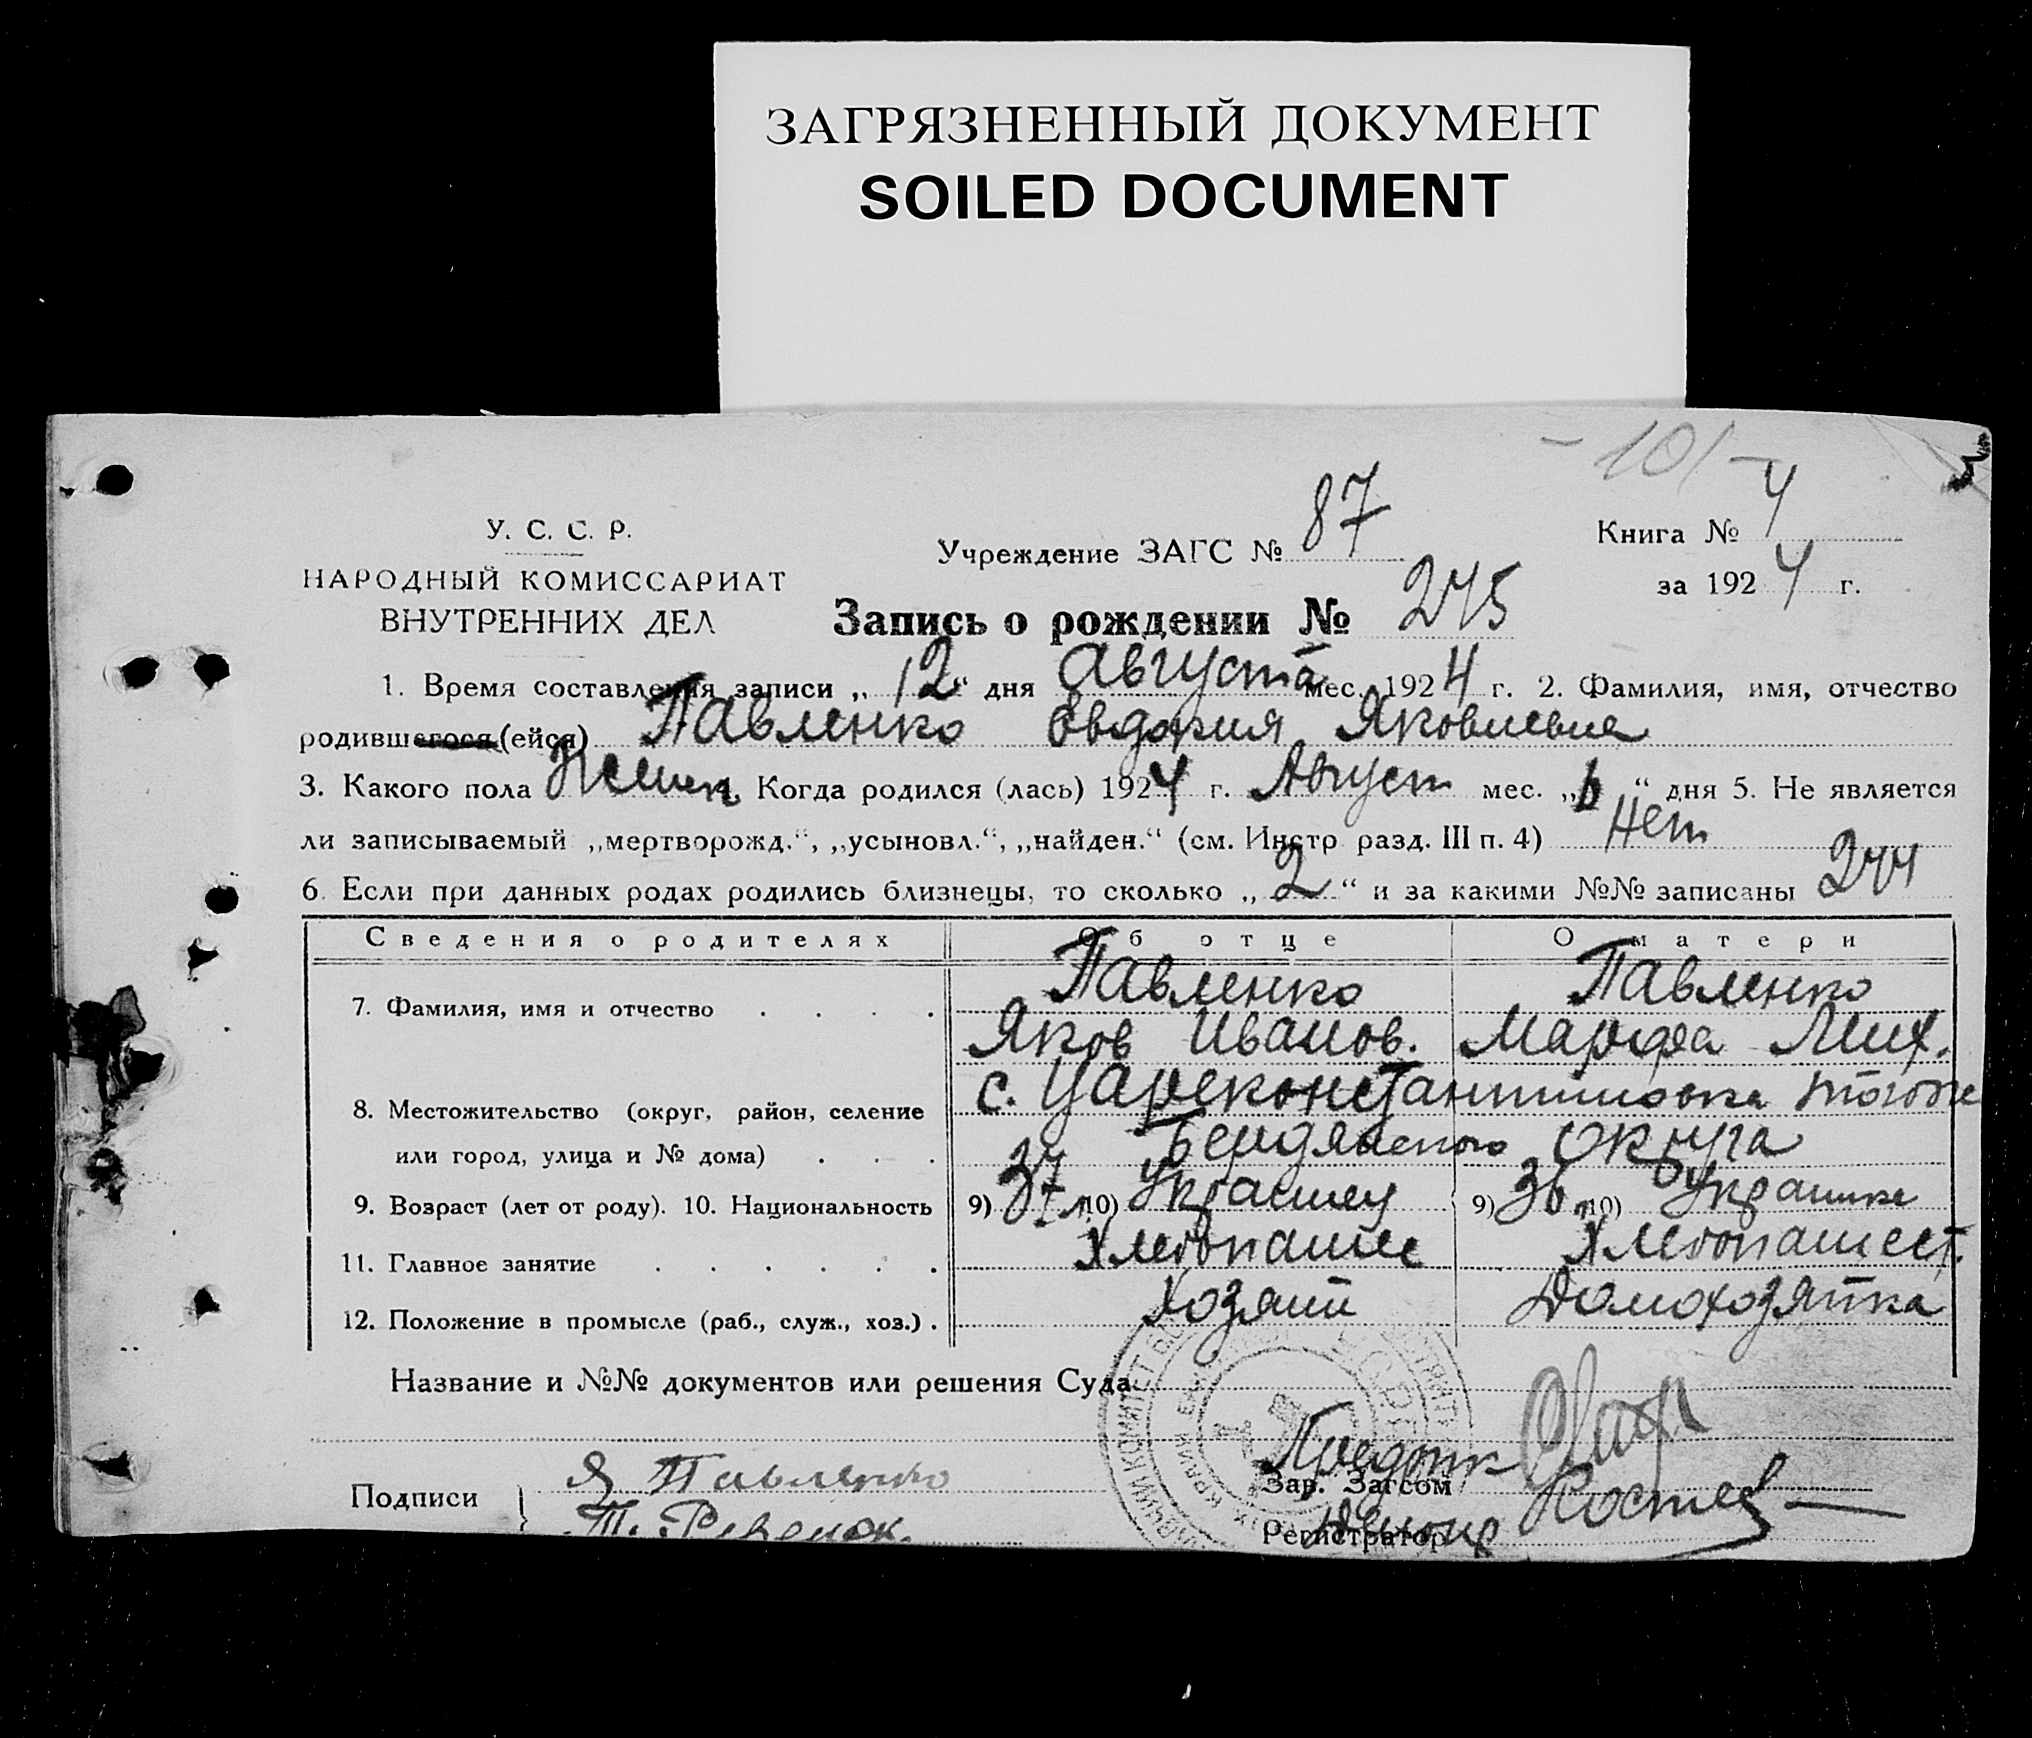 ЗАГРЯЗНЕННЫЙ ДОКУМЕНТ
SOILED DOCUMENT
- 101 -
У. С. С. Р.
НАРОДНЫЙ КОМИССАРИАТ
ВНУТРЕННИХ ДЕЛ
Учреждение ЗАГС № 87
Книга № 4
за 1924 г.
Запись о рождении № 245
1. Время составления записи „12“ дня Августа мес. 1924 г. 2. Фамилия, имя, отчество
родившегося (ейся) Павленко Евдокия Яковлевна
3. Какого пола Женск. Когда родился (лась) 1924 г. Август мес. „6“ дня 5. Не является
ли записываемый „мертворожд.“, „усыновл.“, „найден.“ (см. Инстр разд. III п. 4) Нет
6. Если при данных родах родились близнецы, то сколько „2“ и за какими №№ записаны 244
Сведения о родителях Об отце О матери
7. Фамилия, имя и отчество . . . . Павленко Павленко
Яков Иванов. Марфа Мих.
8. Местожительство (округ, район, селение с. Цареконстантиновка тоже
или город, улица и № дома) . . . Бердянского округа
9. Возраст (лет от роду). 10. Национальность 9) 37 л 10) Украинец 9) 36 10) Украинка
11. Главное занятие . . . . . . Хлебопашес Хлебопашест.
12. Положение в промысле (раб., служ., хоз.) . Хозяин Домохозяйка
Название и №№ документов или решения Суда
Подписи Я Павленко
Зав. Загсом
Т. Ревенок.
Регистратор